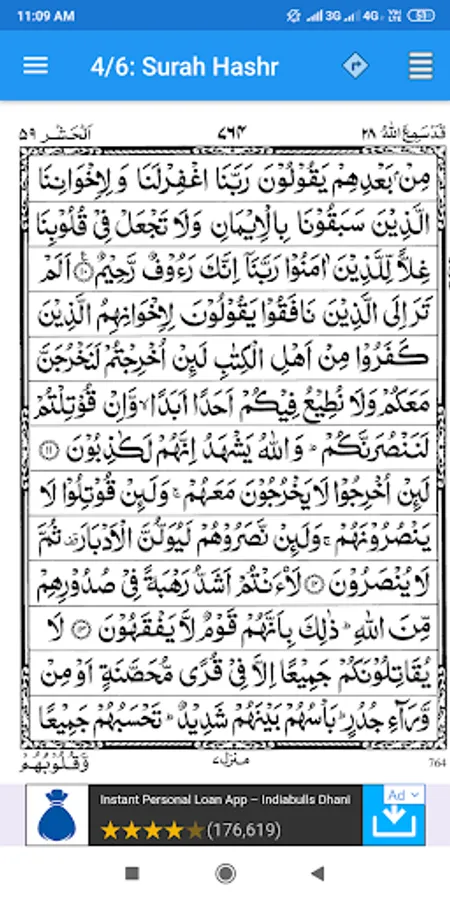 11:09 AM 3G 4G 53
4/6: Surah Hashr
قدسمع الله ٢٨ ٧٦٤ الحشر ٥٩
مِنْۢ بَعْدِهِمْ يَقُوْلُوْنَ رَبَّنَا اغْفِرْلَنَا وَلِاِخْوَانِنَا
الَّذِيْنَ سَبَقُوْنَا بِالْاِيْمَانِ وَلَا تَجْعَلْ فِيْ قُلُوْبِنَا
غِلًّا لِّلَّذِيْنَ اٰمَنُوْا رَبَّنَآ اِنَّكَ رَءُوْفٌ رَّحِيْمٌ ۝١٠ اَلَمْ
تَرَ اِلَى الَّذِيْنَ نَافَقُوْا يَقُوْلُوْنَ لِاِخْوَانِهِمُ الَّذِيْنَ
كَفَرُوْا مِنْ اَهْلِ الْكِتٰبِ لَئِنْ اُخْرِجْتُمْ لَنَخْرُجَنَّ
مَعَكُمْ وَلَا نُطِيْعُ فِيْكُمْ اَحَدًا اَبَدًا ۙ وَّاِنْ قُوْتِلْتُمْ
لَنَنْصُرَنَّكُمْ ؕ وَاللّٰهُ يَشْهَدُ اِنَّهُمْ لَكٰذِبُوْنَ ۝١١
لَئِنْ اُخْرِجُوْا لَا يَخْرُجُوْنَ مَعَهُمْ ۚ وَلَئِنْ قُوْتِلُوْا لَا
يَنْصُرُوْنَهُمْ ۚ وَلَئِنْ نَّصَرُوْهُمْ لَيُوَلُّنَّ الْاَدْبَارَ ۫ ثُمَّ
لَا يُنْصَرُوْنَ ۝١٢ لَاَنْتُمْ اَشَدُّ رَهْبَةً فِيْ صُدُوْرِهِمْ
مِّنَ اللّٰهِ ؕ ذٰلِكَ بِاَنَّهُمْ قَوْمٌ لَّا يَفْقَهُوْنَ ۝١٣ لَا
يُقَاتِلُوْنَكُمْ جَمِيْعًا اِلَّا فِيْ قُرًى مُّحَصَّنَةٍ اَوْ مِنْ
وَّرَآءِ جُدُرٍ ؕ بَاْسُهُمْ بَيْنَهُمْ شَدِيْدٌ ؕ تَحْسَبُهُمْ جَمِيْعًا
وَّقُلُوْبُهُمْ منزل ٧ 764
Instant Personal Loan App – Indiabulls Dhani
(176,619)
Ad